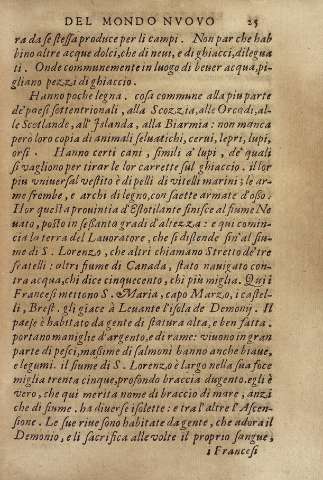 DEL MONDO NVOVO 25
ra da se stessa produce per li campi. Non par che hab
bino altre acque dolci, che di neui, e di ghiacci, dilegua
ti. Onde communemente in luogo di beuer acqua, pi-
gliano pezzi di ghiaccio.
Hanno poche legna. cosa commune alla piu parte
de' paesi settentrionali, alla Scozzia, alle Orcadi, al-
le Scotlande, all' Islanda, alla Biarmia: non manca
però loro copia di animali seluatichi, cerui, lepri, lupi,
orsi. Hanno certi cani, simili a' lupi, de' quali
si vagliono per tirar le lor carrette sul ghiaccio. il lor
piu vniuersal vestito è di pelli di vitelli marini; le ar-
me frombe, e archi di legno, con saette armate d'osso.
Hor questa prouintia d'Estotilante finisce al fiume Ne
uato, posto in sessanta gradi d'altezza: e qui comin-
cia la terra del Lauoratore, che si distende sin'al fiu-
me di S. Lorenzo, che altri chiamano Stretto de' tre
fratelli: oltri fiume di Canada, stato nauigato con-
tra acqua, chi dice cinquecento, chi più miglia. Qui i
Francesi mettono S. Maria, capo Marzo, i castel-
li, Brest. gli giace à Leuante l'isola de Demonij. Il
paese è habitato da gente di statura alta, e ben fatta.
portano maniglie d'argento, e di rame: viuono in gran
parte di pesci, massime di salmoni hanno anche biaue,
e legumi. il fiume di S. Lorenzo è largo nella sua foce
miglia trenta cinque, profondo braccia dugento. egli è
vero, che qui merita nome di braccio di mare, anzi
che di fiume. ha diuerse isolette: e tra l'altre l'Ascen-
sione. Le sue riue sono habitate da gente, che adora il
Demonio, e li sacrifica alle volte il proprio sangue,
i Francesi